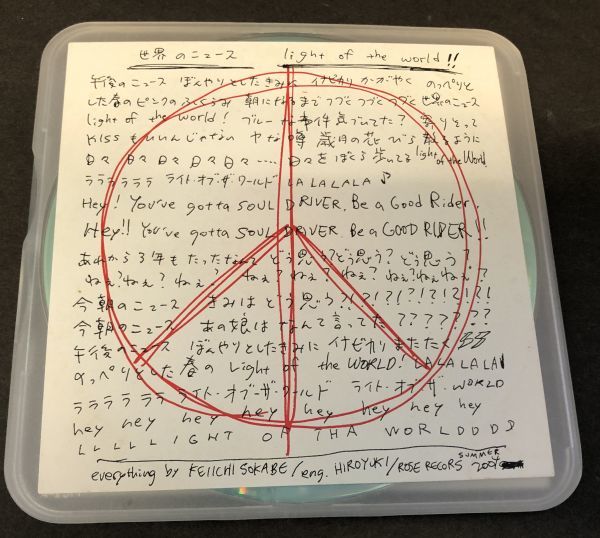 世界のニュース light of the world!!
午後のニュース ぼんやりとしたきみに イナビカリ かがやく のっぺりと
した春のピンクのふくらみ 朝になるまでつづくつづくつづく世界のニュース
light of the world! ブルーな事件真づいてた? 寄りそって
KISSもいいんじゃない ヤな噂 歳月の花びら 散るように
日々 日々 日々 日々 .... 日々をぼくら歩いてる light of the World
ララララララ ライト・オブ・ザ・ワールド LALALALA ♪
Hey! You've gotta SOUL DRIVER. Be a Good Rider.
Hey!! You've gotta SOUL DRIVER. Be a GOOD RIDER!!
あれから3年もたったなんて どう思う?どう思う? どう思う?
ねぇ?ねぇ?ねぇ? ねぇ? ねぇ? ねぇ?ねぇ?ねぇ?
今朝のニュース きみはどう思う?!?!?!?!?!?!
今朝のニュース あの娘はなんて言ってた???????
午後のニュース ぼんやりとしたきみに イナビカリ またたく
のっぺりとした春の Light of the WORLD! LALALALA!
ララララララ ライト・オブ・ザ・ワールド ライト・オブ・ザ・WORLD
hey hey hey hey hey hey hey hey
LLLLLIGHT OF THA WORLDDDD
everything by KEIICHI SOKABE/eng. HIROYUKI/ROSE RECORS SUMMER 2004